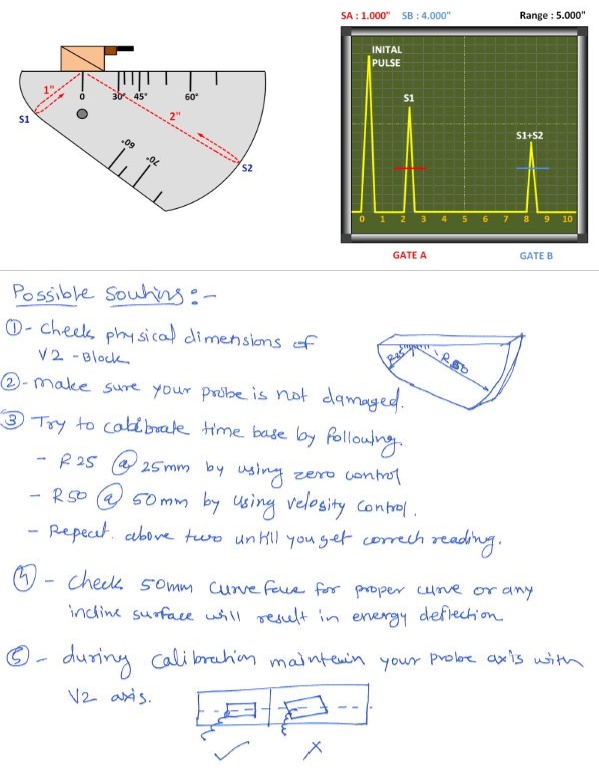 SA : 1.000" SB : 4.000" Range : 5.000"
INITAL
PULSE
S1
S1+S2
0 1 2 3 4 5 6 7 8 9 10
GATE A GATE B
1"
0 30° 45° 60°
2"
S1
60°
70°
S2
Possible Soutions :-
① - Check physical dimensions of
V2 - Block
R25
R50
② - make sure your probe is not damaged.
③ Try to calibrate time base by following.
- R25 @ 25mm by using zero control
- R50 @ 50mm by using velosity control.
- Repeat above two untill you get correch reading.
④ - Check 50mm curve face for proper curve or any
incline surface will result in energy deflection
⑤ - during calibration maintein your probe axis with
V2 axis.